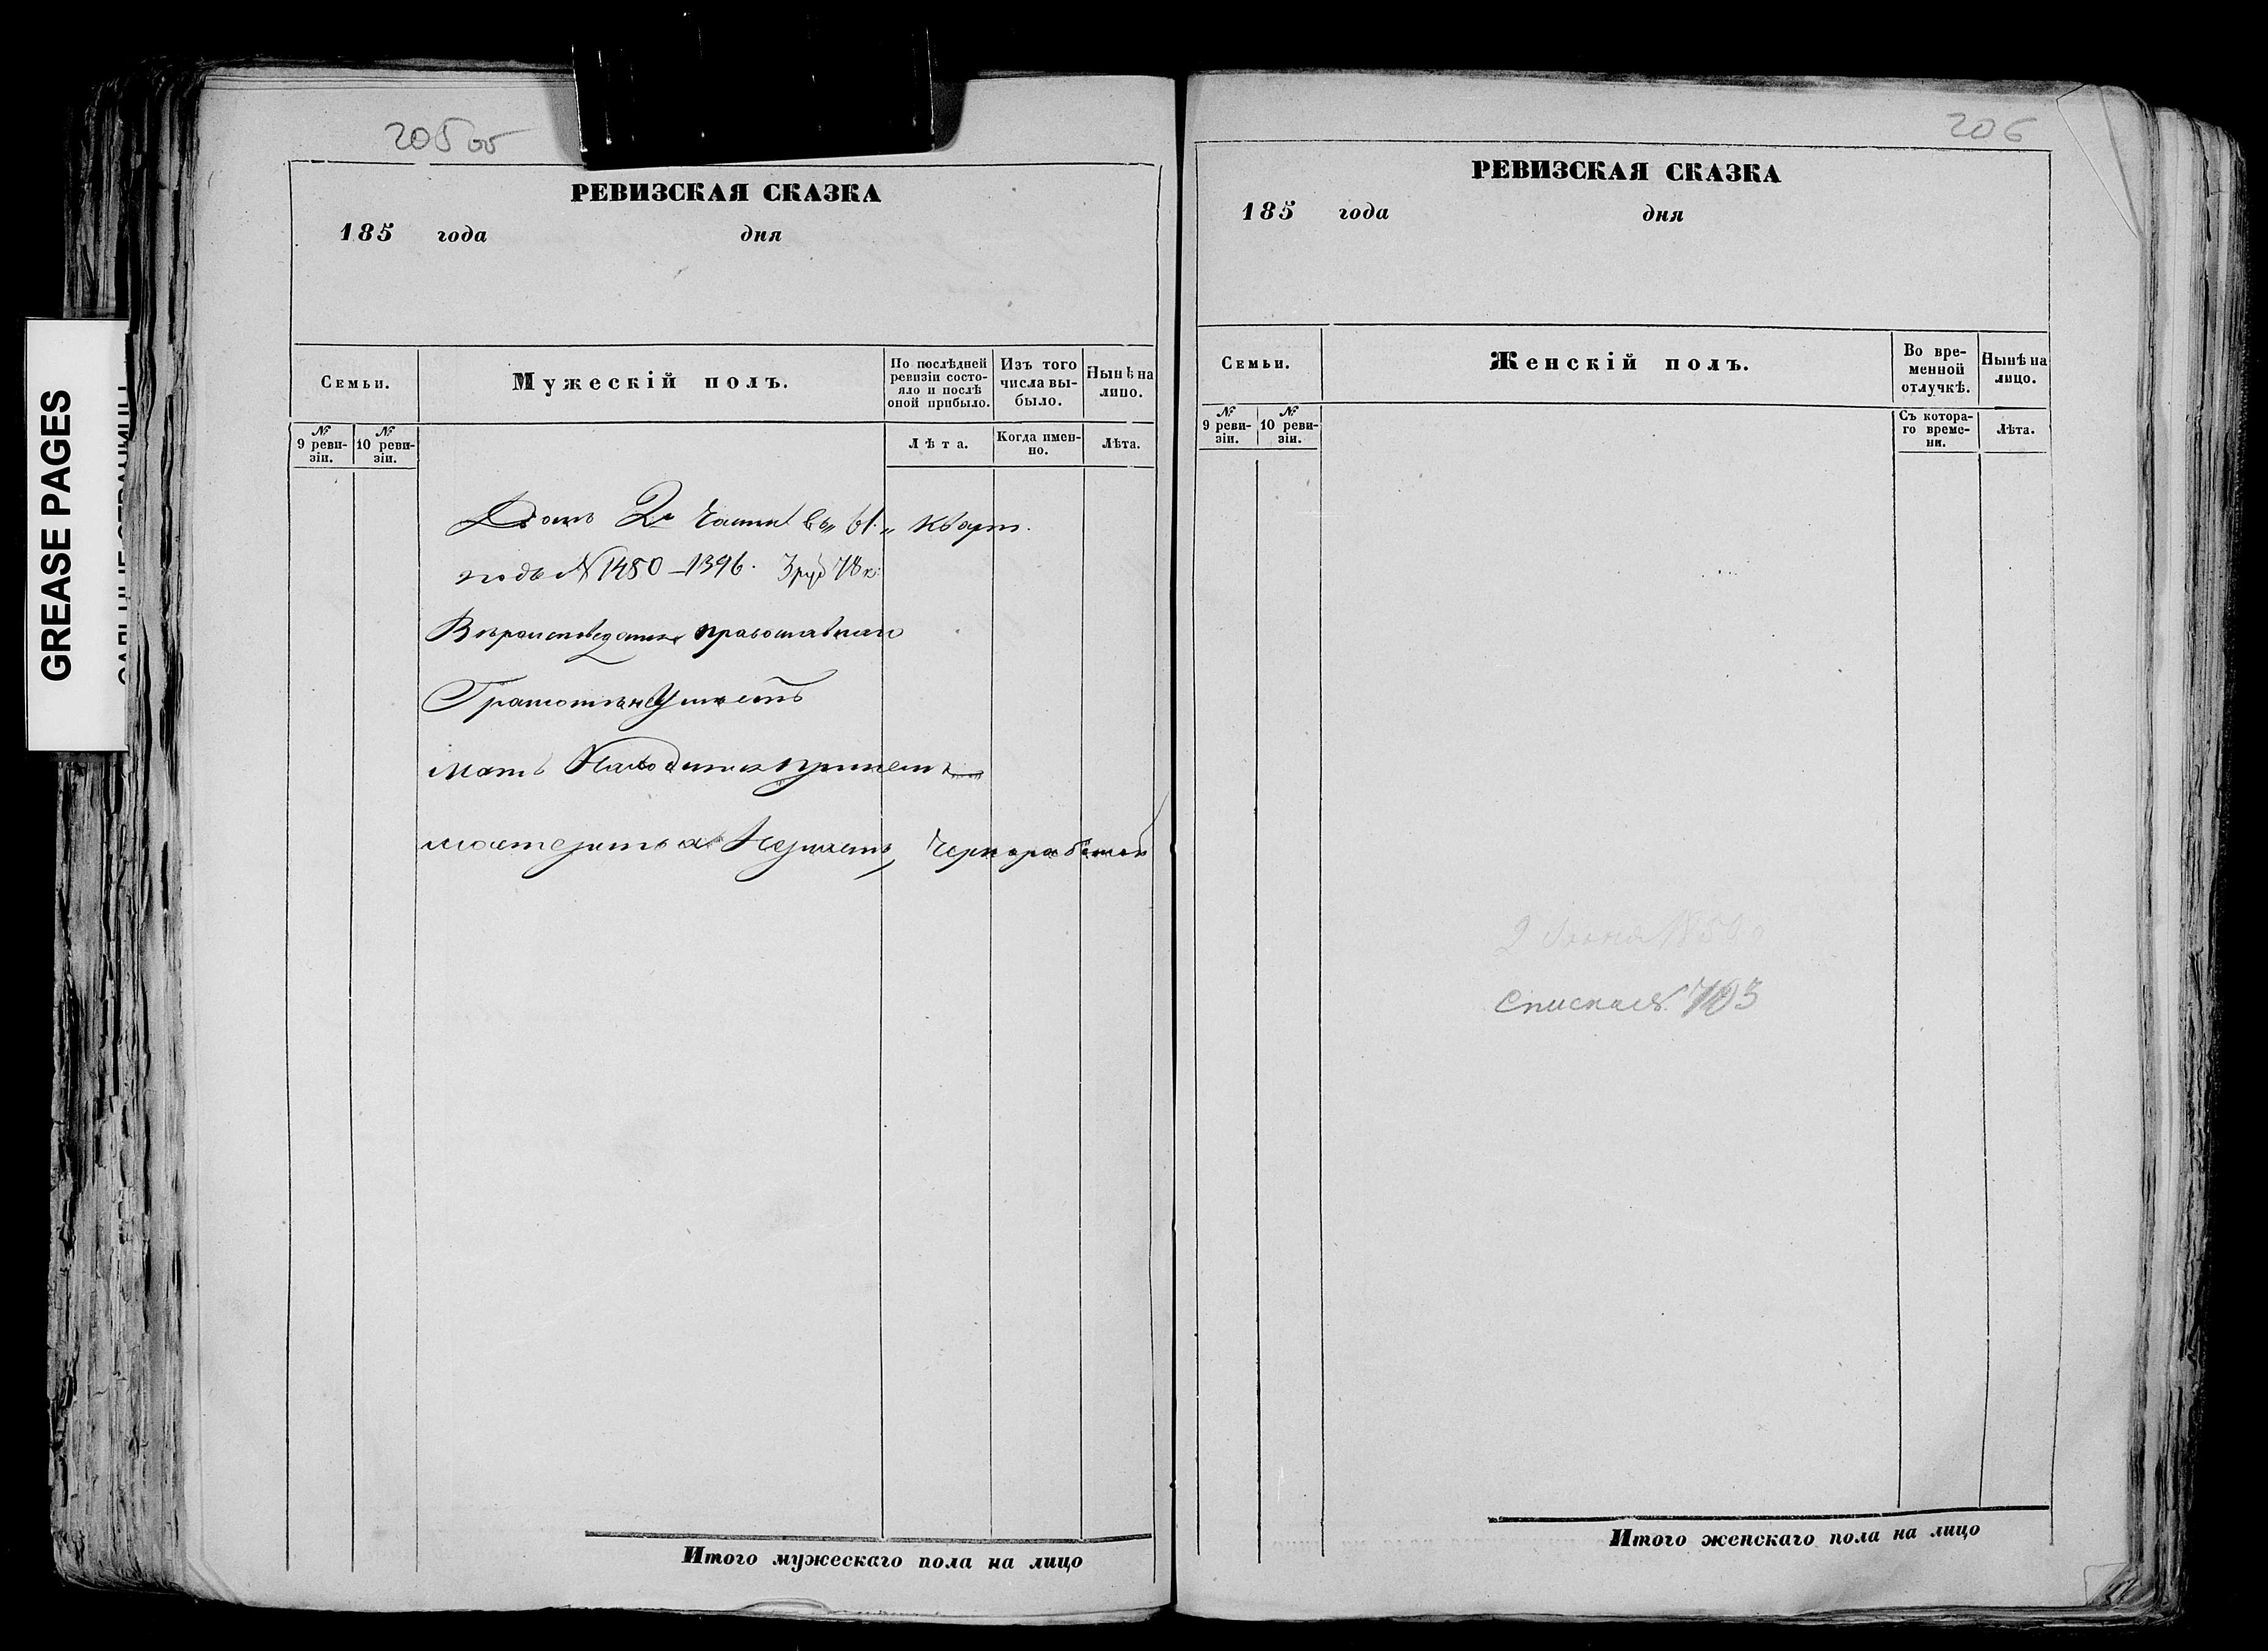 205 об
РЕВИЗСКАЯ СКАЗКА
185 года дня
Семьи.
Мужескій полъ.
По послѣдней ревизіи состояло и послѣ оной прибыло.
Изъ того числа выбыло.
Нынѣ на лицо.
№ 9 ревизіи.
№ 10 ревизіи.
Лѣта.
Когда именно.
Лѣта.
Домъ 2й Части въ 61. Кварт.
подъ № 1480 – 1396. 3 руб 78 к.
Вѣроисповеданія православнаго
Грамоты не Умѣетъ
мать Находится при немъ
мастерства Неимеетъ, Чернорабочей
Итого мужескаго пола на лицо
206
РЕВИЗСКАЯ СКАЗКА
185 года дня
Семьи.
Женскій полъ.
Во временной отлучкѣ.
Нынѣ на лицо.
№ 9 ревизіи.
№ 10 ревизіи.
Съ котораго времени.
Лѣта.
2 Июня №
Списка №
Итого женскаго пола на лицо
GREASE PAGES